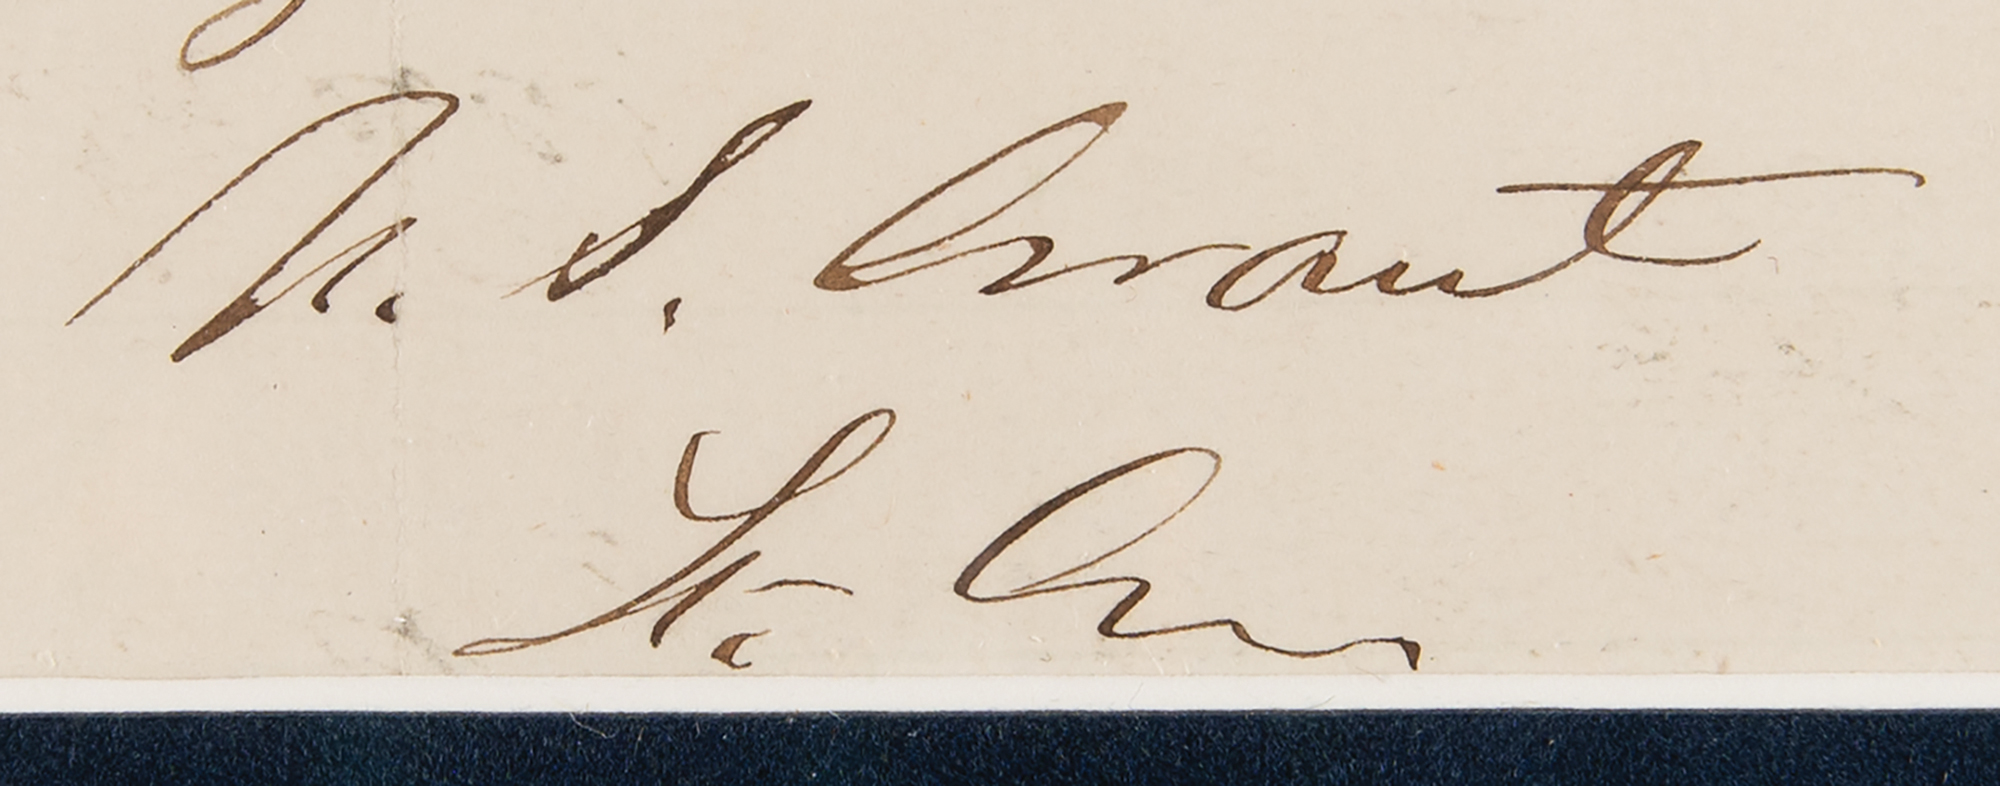 U. S. Grant
Lt. Gn